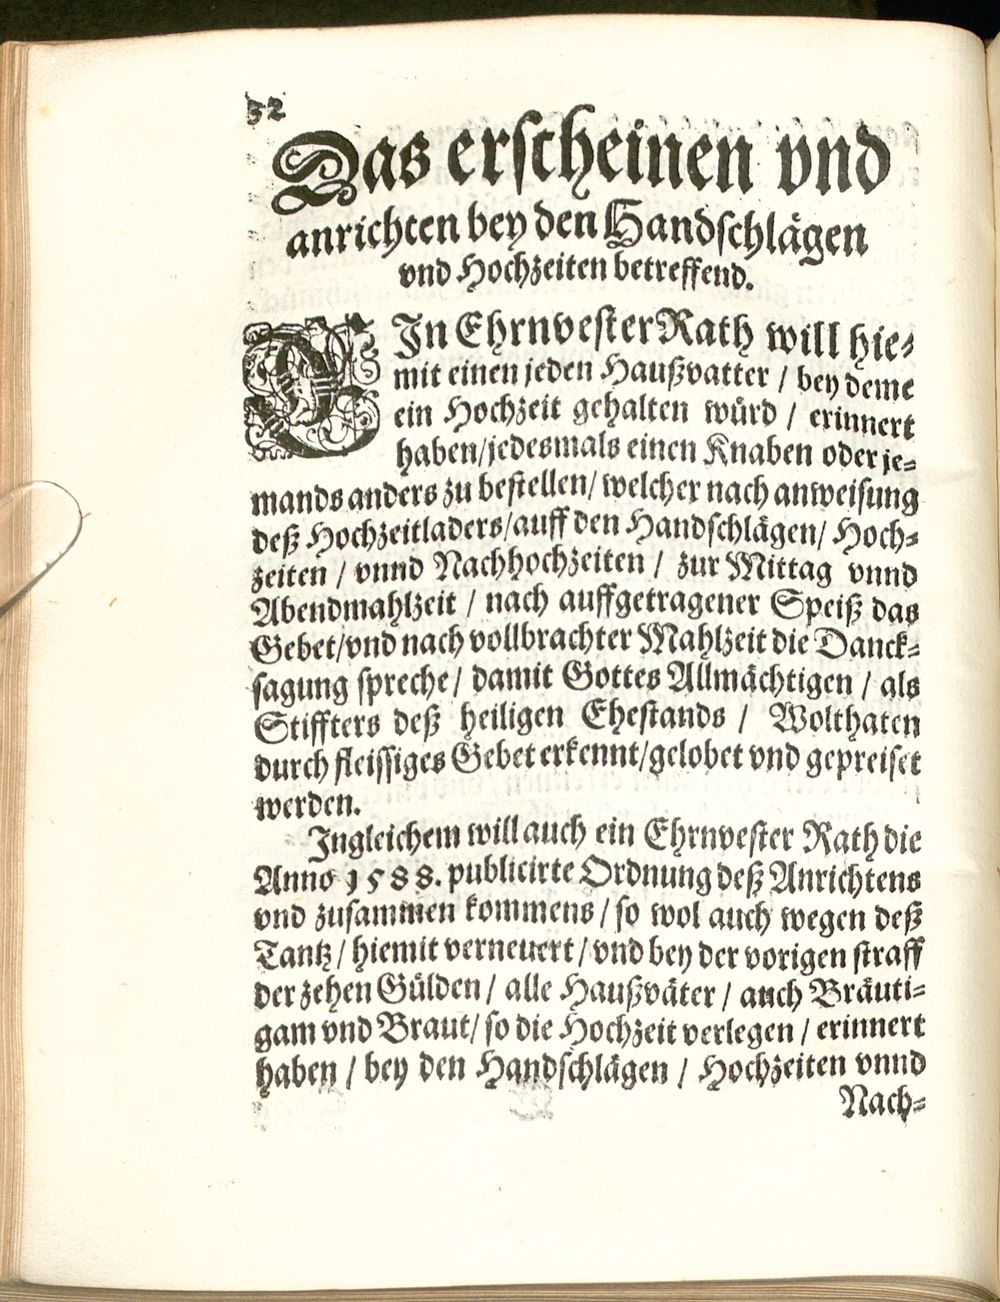 32
Das erscheinen vnd
anrichten bey den Handschlägen
vnd Hochzeiten betreffend.
EIn EhrnvesterRath will hie-
mit einen jeden Haußvatter / bey deme
ein Hochzeit gehalten würd / erinnert
haben/jedesmals einen Knaben oder je-
mands anders zu bestellen/ welcher nach anweisung
deß Hochzeitladers/auff den Handschlägen/ Hoch-
zeiten / vnnd Nachhochzeiten / zur Mittag vnnd
Abendmahlzeit / nach auffgetragener Speiß das
Gebet/vnd nach vollbrachter Mahlzeit die Danck-
sagung spreche/ damit Gottes Allmächtigen / als
Stiffters deß heiligen Ehestands / Wolthaten
durch fleissiges Gebet erkennt/gelobet vnd gepreiset
werden.
Ingleichem will auch ein Ehrnvester Rath die
Anno 1588. publicirte Ordnung deß Anrichtens
vnd zusammen kommens / so wol auch wegen deß
Tantz / hiemit verneuert / vnd bey der vorigen straff
der zehen Gülden / alle Haußväter / auch Bräuti-
gam vnd Braut/ so die Hochzeit verlegen / erinnert
haben / bey den Handschlägen / Hochzeiten vnnd
Nach-